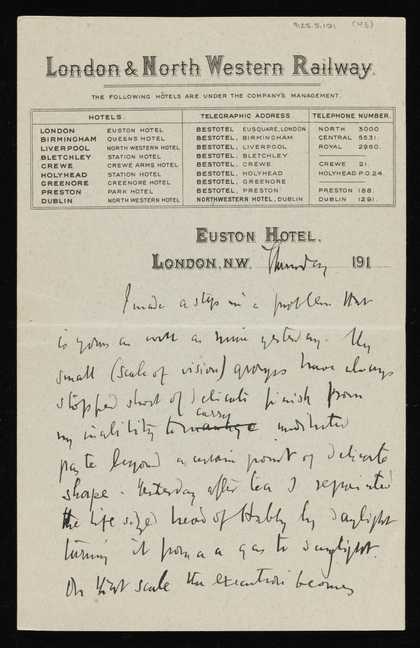 925.5.191 (43)
London & North Western Railway.
THE FOLLOWING HOTELS ARE UNDER THE COMPANY'S MANAGEMENT.
HOTELS. TELEGRAPHIC ADDRESS TELEPHONE NUMBER.
LONDON EUSTON HOTEL BESTOTEL, EUSQUARE, LONDON NORTH 3000
BIRMINGHAM QUEENS HOTEL BESTOTEL, BIRMINGHAM CENTRAL 5531.
LIVERPOOL NORTH WESTERN HOTEL BESTOTEL, LIVERPOOL ROYAL 2960.
BLETCHLEY STATION HOTEL BESTOTEL, BLETCHLEY
CREWE CREWE ARMS HOTEL BESTOTEL, CREWE CREWE 21.
HOLYHEAD STATION HOTEL BESTOTEL, HOLYHEAD HOLYHEAD P.O.24.
GREENORE GREENORE HOTEL BESTOTEL, GREENORE
PRESTON PARK HOTEL BESTOTEL, PRESTON PRESTON 188.
DUBLIN NORTH WESTERN HOTEL NORTHWESTERN HOTEL, DUBLIN DUBLIN 1291.
EUSTON HOTEL.
LONDON, N.W. Thursday 191
I made a step in a problem that
is yours as well as mine yesterday. My
small (scale of vision) groups have always
stopped short of delicate finish from
carry
my inability to unlimited
paste beyond a certain point of delicate
shape. Yesterday after tea I repainted
the life sized head of Hubby by daylight
turning it from a a gas to daylight.
On that scale the execution becomes